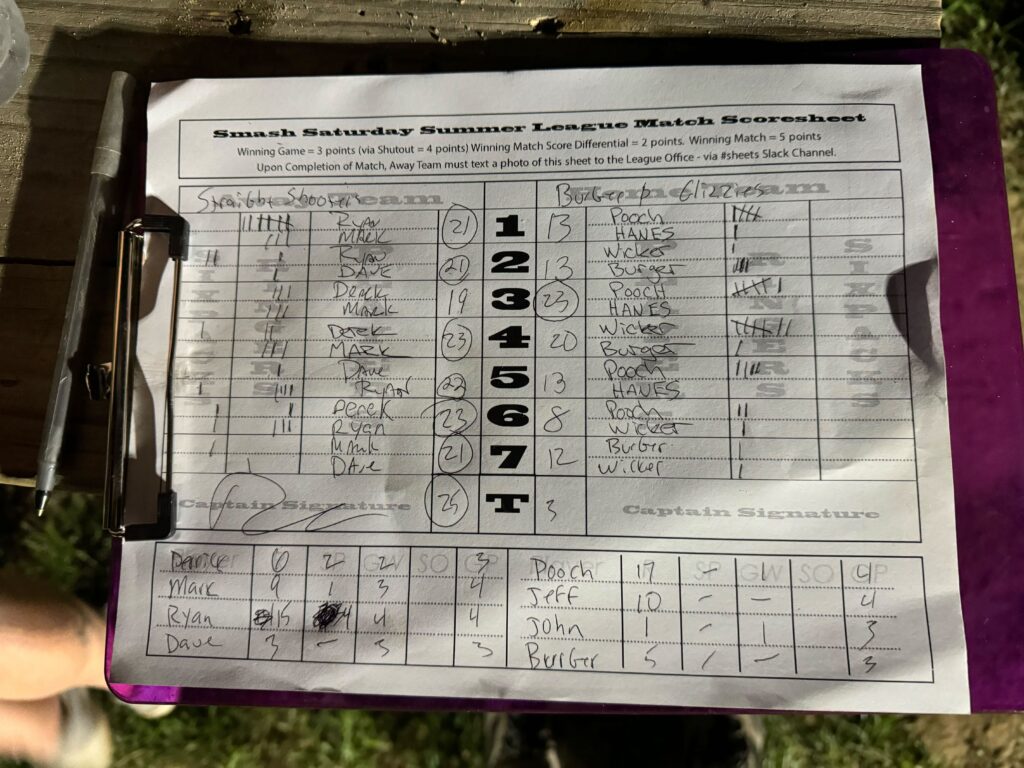 Smash Saturday Summer League Match Scoresheet
Winning Game = 3 points (via Shutout = 4 points) Winning Match Score Differential = 2 points. Winning Match = 5 points
Upon Completion of Match, Away Team must text a photo of this sheet to the League Office - via #sheets Slack Channel.
Straight Shooters Burger Glizzies
Ryan 21 1 13 Pooch
MARK HANES
Ryan 21 2 13 Wicker
DAVE Burger
Derek 19 3 23 Pooch
MARK HANES
Derek 23 4 20 Wicker
MARK Burger
Dave 22 5 13 Pooch
RYAN HANES
Derek 23 6 8 Pooch
Ryan Wicker
Mark 21 7 12 Burger
DAve Wicker
Captain Signature 25 T 3 Captain Signature
6 2 2 SO 3 Pooch 17 - 1 SO 4
Mark 9 1 3 4 Jeff 10 - - 4
Ryan 15 4 4 4 John 1 - 1 3
Dave 3 - 3 3 Burger 5 - - 3